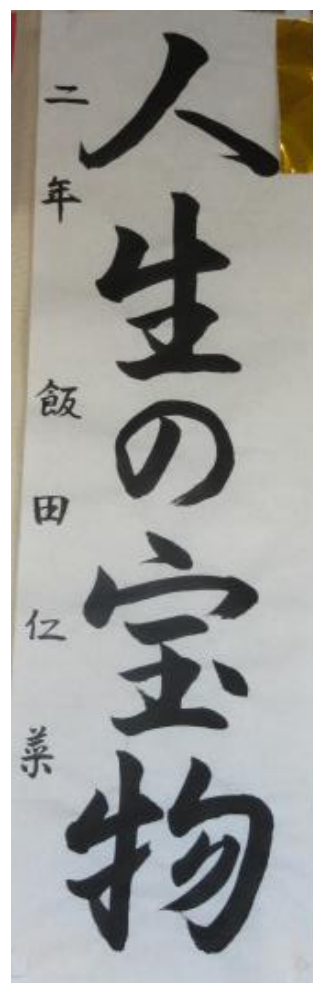 人生の宝物
二年 飯田仁菜